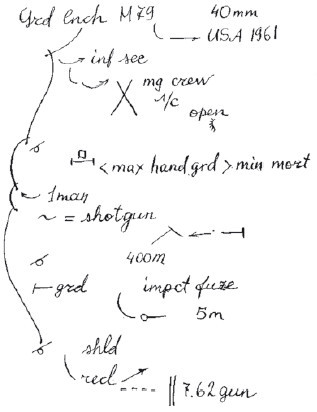 Grd lnch M79 40mm
USA 1961
inf sec
mg crew
v/c
open
< max hand.grd > min mort
1man
~ = shotgun
400m
grd impct fuze
5m
shld
red
7.62 gun